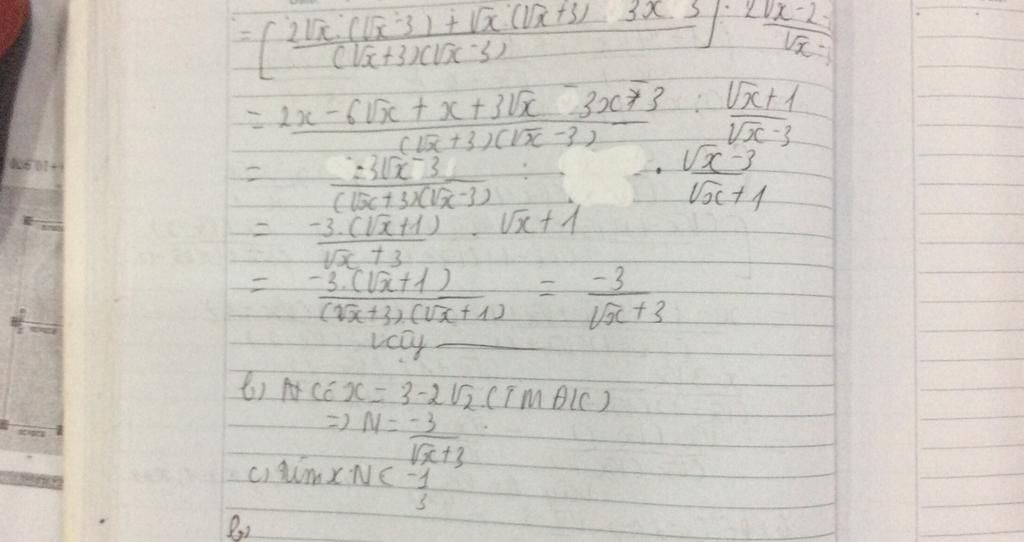 = [ 2√x.(√x-3) + √x.(√x+3) 3x 3 / (√x+3)(√x-3) ] : 2√x-2- / √x-
= 2x-6√x + x+3√x 3x+3 / (√x+3)(√x-3) : √x+1 / √x-3
= -3√x-3 / (√x+3)(√x-3) : . √x-3 / √x+1
= -3.(√x+1) / √x+3 . √x+1
= -3.(√x+1) / (√x+3).(√x+1) = -3 / √x+3
Vậy
b) có x = 3-2√2 (TMĐK)
=> N = -3 / √x+3
c) Tìm x N < -1 / 3
b)